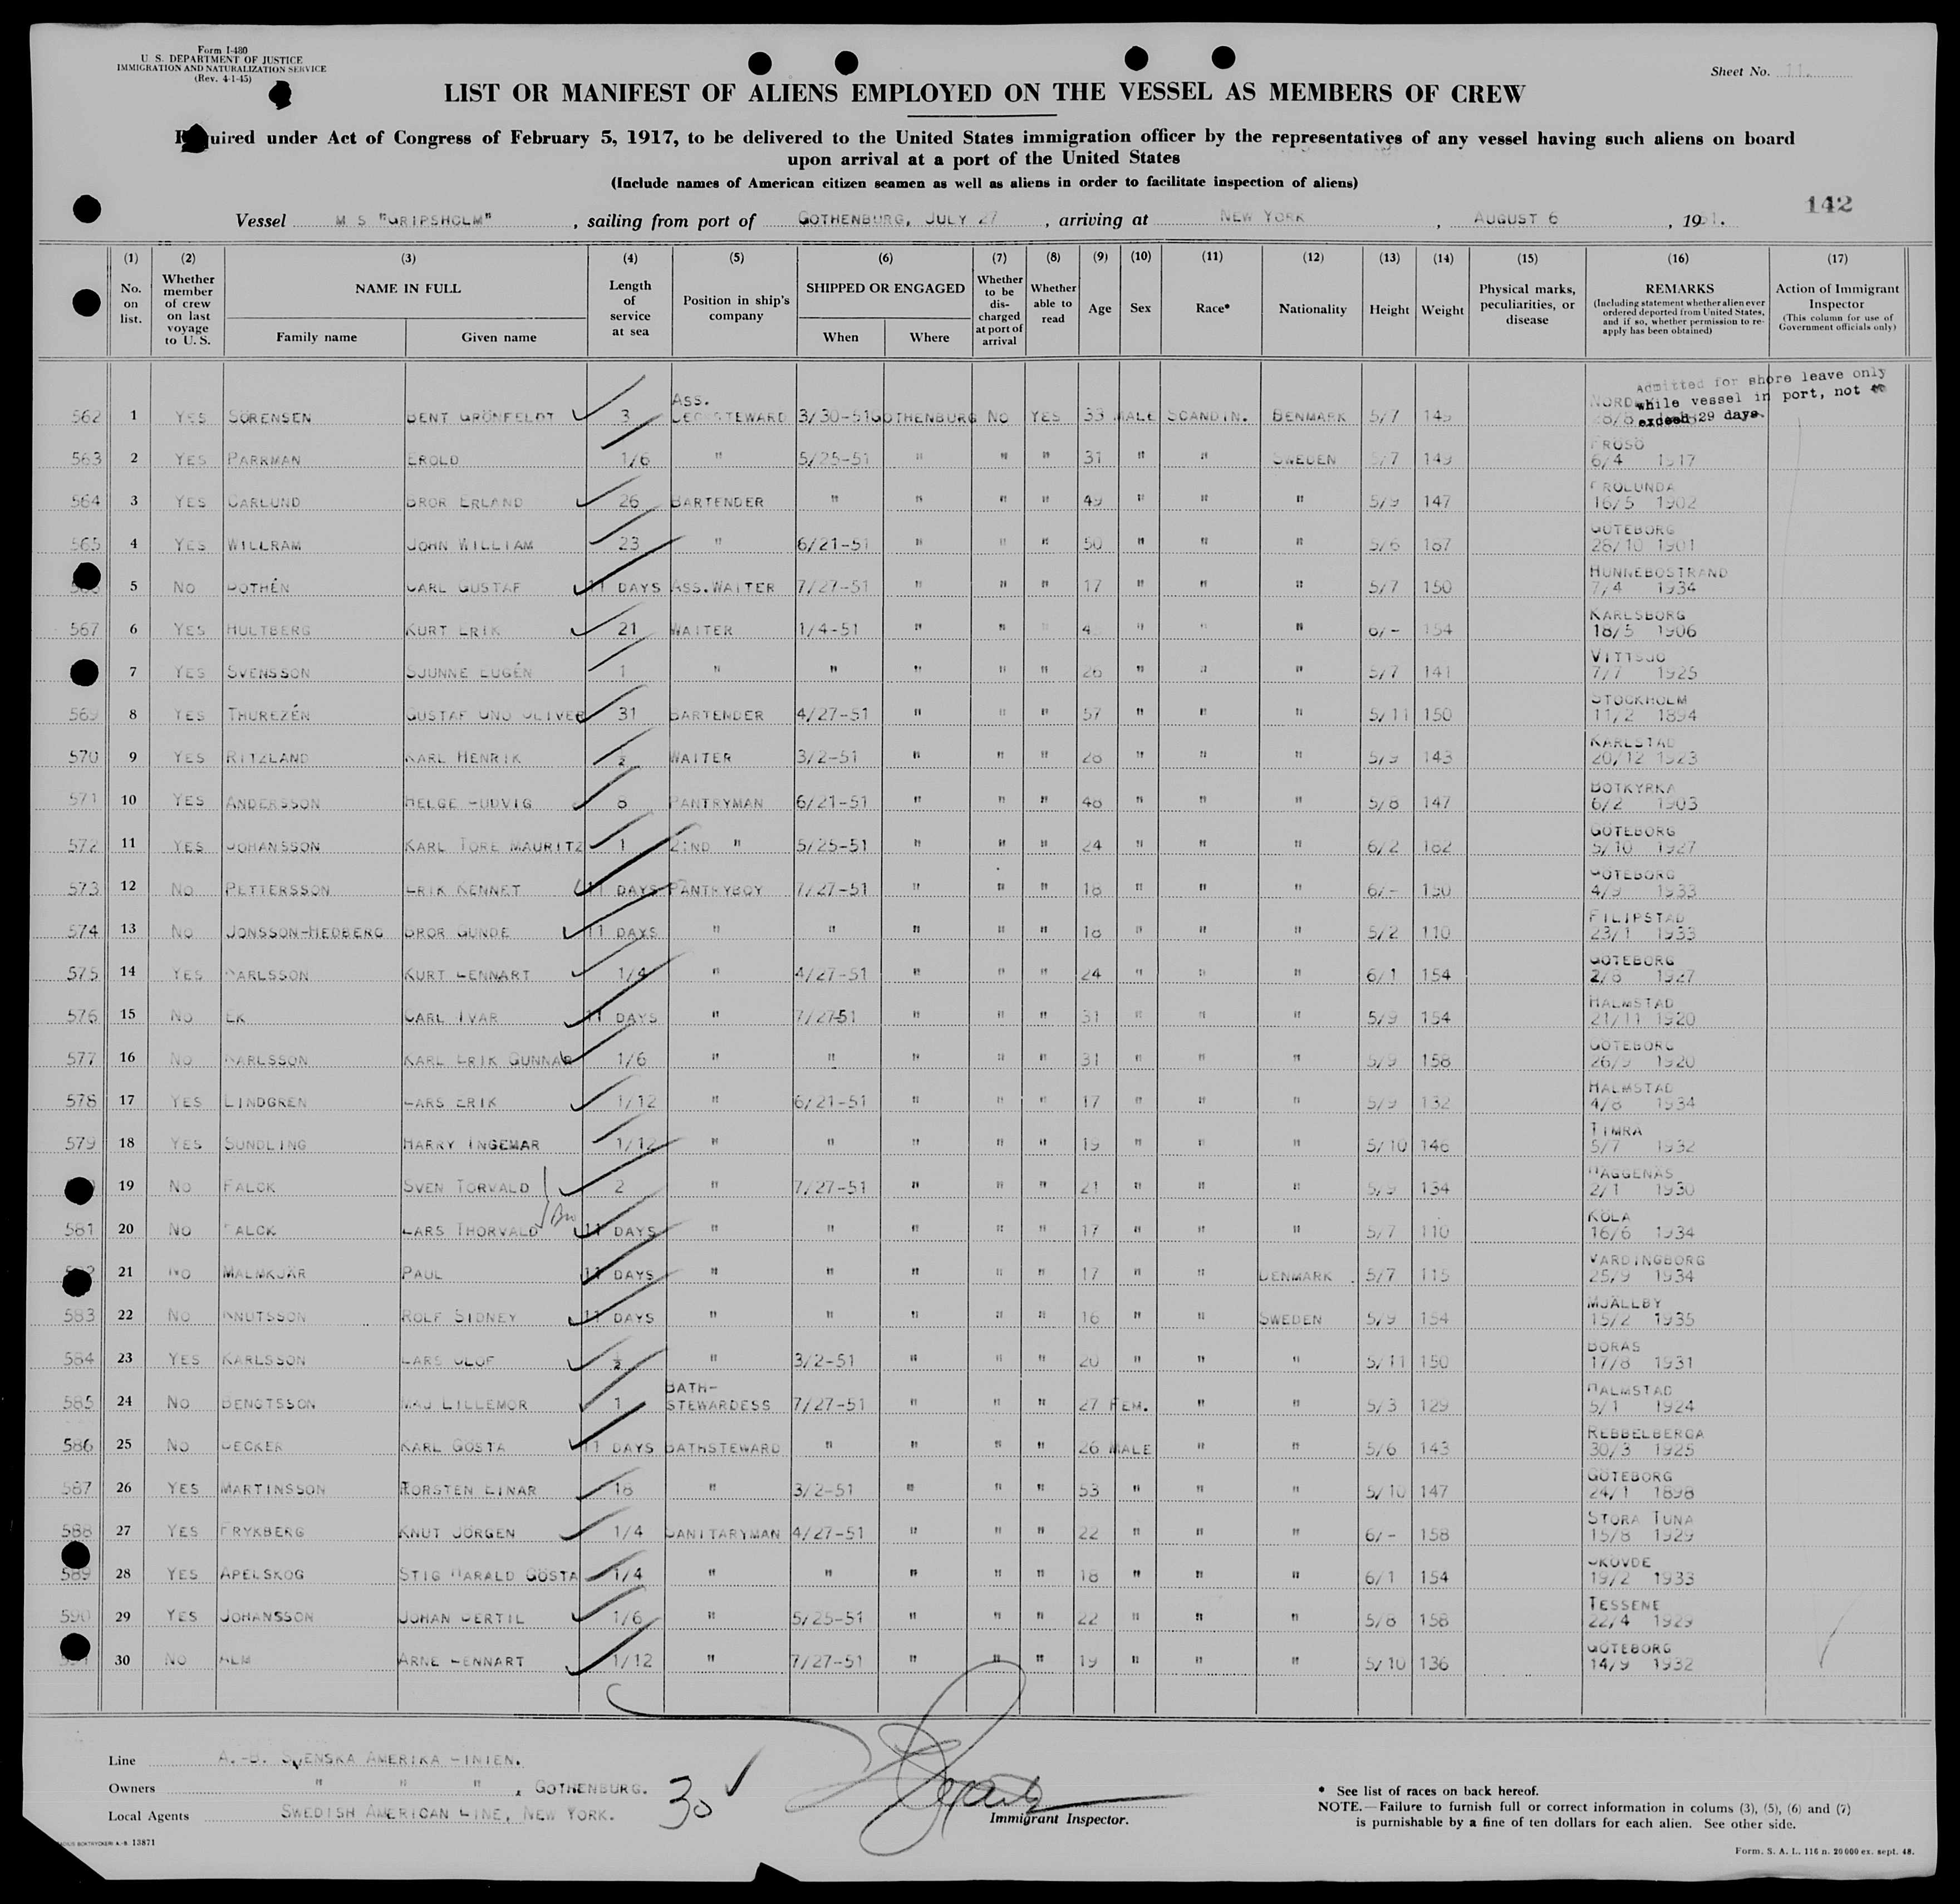 Form I-480
U. S. DEPARTMENT OF JUSTICE
IMMIGRATION AND NATURALIZATION SERVICE
(Rev. 4-1-45)
Sheet No. 11.
LIST OR MANIFEST OF ALIENS EMPLOYED ON THE VESSEL AS MEMBERS OF CREW
Required under Act of Congress of February 5, 1917, to be delivered to the United States immigration officer by the representatives of any vessel having such aliens on board
upon arrival at a port of the United States
(Include names of American citizen seamen as well as aliens in order to facilitate inspection of aliens)
142
Vessel M S "GRIPSHOLM", sailing from port of GOTHENBURG, JULY 27, arriving at NEW YORK, AUGUST 6, 1951.
(1) No. on list. (2) Whether member of crew on last voyage to U. S. (3) NAME IN FULL Family name Given name (4) Length of service at sea (5) Position in ship's company (6) SHIPPED OR ENGAGED When Where (7) Whether to be discharged at port of arrival (8) Whether able to read (9) Age (10) Sex (11) Race* (12) Nationality (13) Height (14) Weight (15) Physical marks, peculiarities, or disease (16) REMARKS (Including statement whether alien ever ordered deported from United States, and if so, whether permission to reapply has been obtained) (17) Action of Immigrant Inspector (This column for use of Government officials only)
Admitted for shore leave only
while vessel in port, not to
exceed 29 days.
562 1 YES SÖRENSEN BENT GRÖNFELDT 3 ASS. DECKSTEWARD 3/30-51 GOTHENBURG NO YES 33 MALE SCANDIN. DENMARK 5/7 149
563 2 YES PARKMAN EROLD 1/6 " 5/25-51 " " " 31 " " SWEDEN 5/7 149 FRÖSÖ 6/4 1917
564 3 YES CARLUND BROR ERLAND 26 BARTENDER " " " " 49 " " " 5/9 147 FROLUNDA 16/5 1902
565 4 YES WILLRAM JOHN WILLIAM 23 " 6/21-51 " " " 50 " " " 5/6 187 GÖTEBORG 26/10 1901
5 NO DOTHÉN CARL GUSTAF 11 DAYS ASS.WAITER 7/27-51 " " " 17 " " " 5/7 150 HUNNEBOSTRAND 7/4 1934
567 6 YES HULTBERG KURT ERIK 21 WAITER 1/4-51 " " " " " " 6/- 154 KARLSBORG 18/5 1906
7 YES SVENSSON SJUNNE EUGÉN 1 " " " " " 26 " " " 5/7 141 VITTSJÖ 7/7 1925
569 8 YES THUREZÉN GUSTAF UNO OLIVER 31 BARTENDER 4/27-51 " " " 57 " " " 5/11 150 STOCKHOLM 11/2 1894
570 9 YES RITZLAND KARL HENRIK ½ WAITER 3/2-51 " " " 28 " " " 5/9 143 KARLSTAD 20/12 1923
571 10 YES ANDERSSON HELGE LUDVIG 8 PANTRYMAN 6/21-51 " " " 48 " " " 5/8 147 BOTKYRKA 6/2 1903
572 11 YES JOHANSSON KARL TORE MAURITZ 1 2:ND " 5/25-51 " " " 24 " " " 6/2 182 GÖTEBORG 5/10 1927
573 12 NO PETTERSSON ERIK KENNET 11 DAYS PANTRYBOY 7/27-51 " " " 18 " " " 6/- 150 GÖTEBORG 4/9 1933
574 13 NO JONSSON-HEDBERG BROR GUNDE 11 DAYS " " " " " 18 " " " 5/2 110 FILIPSTAD 23/1 1933
575 14 YES KARLSSON KURT LENNART 1/4 " 4/27-51 " " " 24 " " " 6/1 154 GÖTEBORG 2/8 1927
576 15 NO EK CARL IVAR 11 DAYS " 7/27-51 " " " 31 " " " 5/9 154 HALMSTAD 21/11 1920
577 16 NO KARLSSON KARL ERIK GUNNAR 1/6 " " " " " 31 " " " 5/9 158 GÖTEBORG 26/9 1920
578 17 YES LINDGREN LARS ERIK 1/12 " 6/21-51 " " " 17 " " " 5/9 132 HALMSTAD 4/8 1934
579 18 YES SUNDLING HARRY INGEMAR 1/12 " " " " " 19 " " " 5/10 146 TIMRA 5/7 1932
19 NO FALCK SVEN TORVALD 2 " 7/27-51 " " " 21 " " " 5/9 134 HÄGGENÅS 2/1 1930
581 20 NO FALCK LARS THORVALD 11 DAYS " " " " " 17 " " " 5/7 110 KÖLA 16/6 1934
21 NO MALMKJÄR PAUL 11 DAYS " " " " " 17 " " DENMARK 5/7 115 VARDINGBORG 25/9 1934
583 22 NO KNUTSSON ROLF SIDNEY 11 DAYS " " " " " 16 " " SWEDEN 5/9 154 MJÄLLBY 15/2 1935
584 23 YES KARLSSON LARS OLOF ½ " 3/2-51 " " " 20 " " " 5/11 150 BORÅS 17/8 1931
585 24 NO BENGTSSON MAJ LILLEMOR 1 BATH-STEWARDESS 7/27-51 " " " 27 FEM. " " 5/3 129 HALMSTAD 5/1 1924
586 25 NO DECKER KARL GÖSTA 11 DAYS BATHSTEWARD " " " " 26 MALE " " 5/6 143 REBBELBERGA 30/3 1925
587 26 YES MARTINSSON TORSTEN EINAR 18 " 3/2-51 " " " 53 " " " 5/10 147 GÖTEBORG 24/1 1898
588 27 YES FRYKBERG KNUT JÖRGEN 1/4 SANITARYMAN 4/27-51 " " " 22 " " " 6/- 158 STORA TUNA 15/8 1929
589 28 YES APELSKOG STIG HARALD GÖSTA 1/4 " " " " " 18 " " " 6/1 154 SKÖVDE 19/2 1933
590 29 YES JOHANSSON JOHAN BERTIL 1/6 " 5/25-51 " " " 22 " " " 5/8 158 TESSENE 22/4 1929
30 NO ALM ARNE LENNART 1/12 " 7/27-51 " " " 19 " " " 5/10 136 GÖTEBORG 14/9 1932
Line A.-B. SVENSKA AMERIKA LINIEN.
Owners " " " , GOTHENBURG.
Local Agents SWEDISH AMERICAN LINE, NEW YORK.
30 ✓
Immigrant Inspector.
* See list of races on back hereof.
NOTE.—Failure to furnish full or correct information in colums (3), (5), (6) and (7)
is punishable by a fine of ten dollars for each alien. See other side.
BOKTRYCKERI A.-B. 13871
Form. S. A. L. 116 n. 20 000 ex. sept. 48.